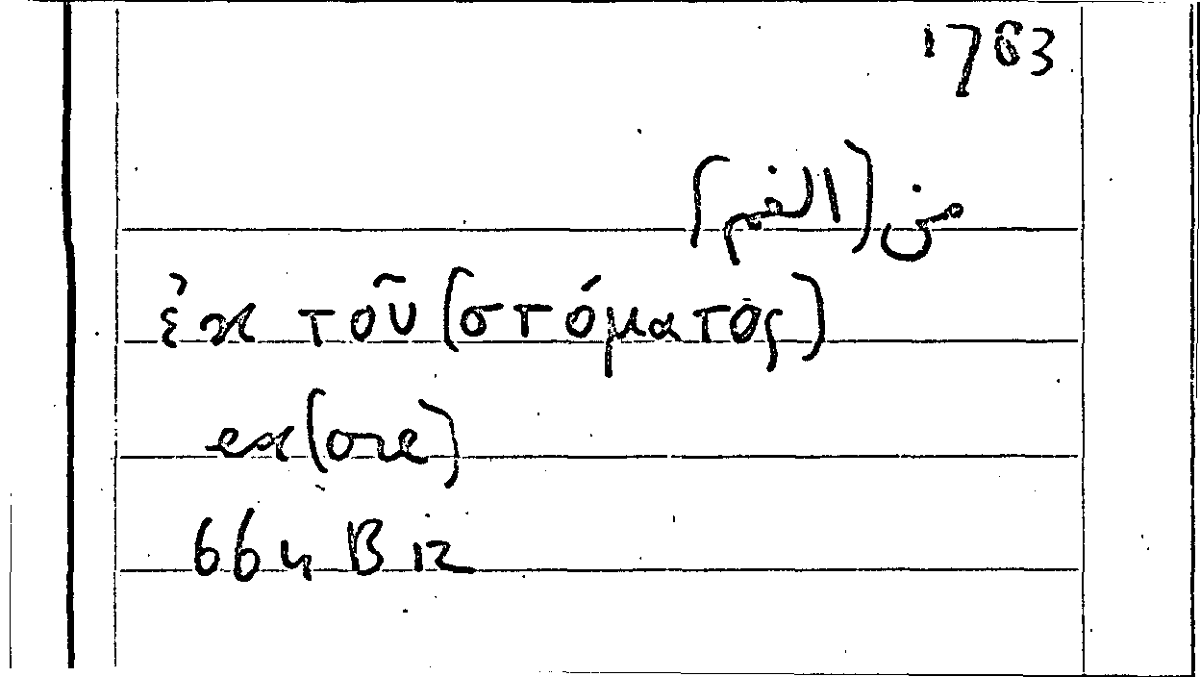 1783
من (الفم)
ἐκ τοῦ (στόματος)
ex (ore)
664 B 12